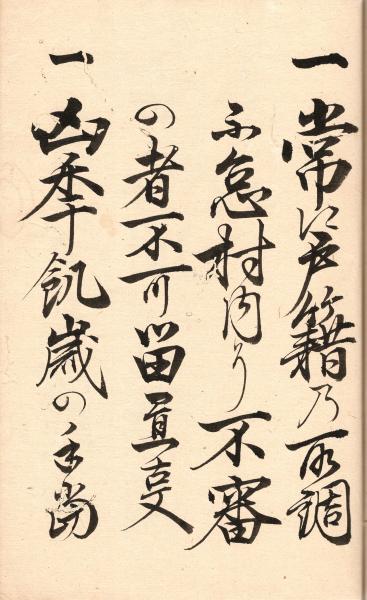 一常に戸籍乃取調
不怠村内より不審
の者不可留置事
一凶年飢歳の手當